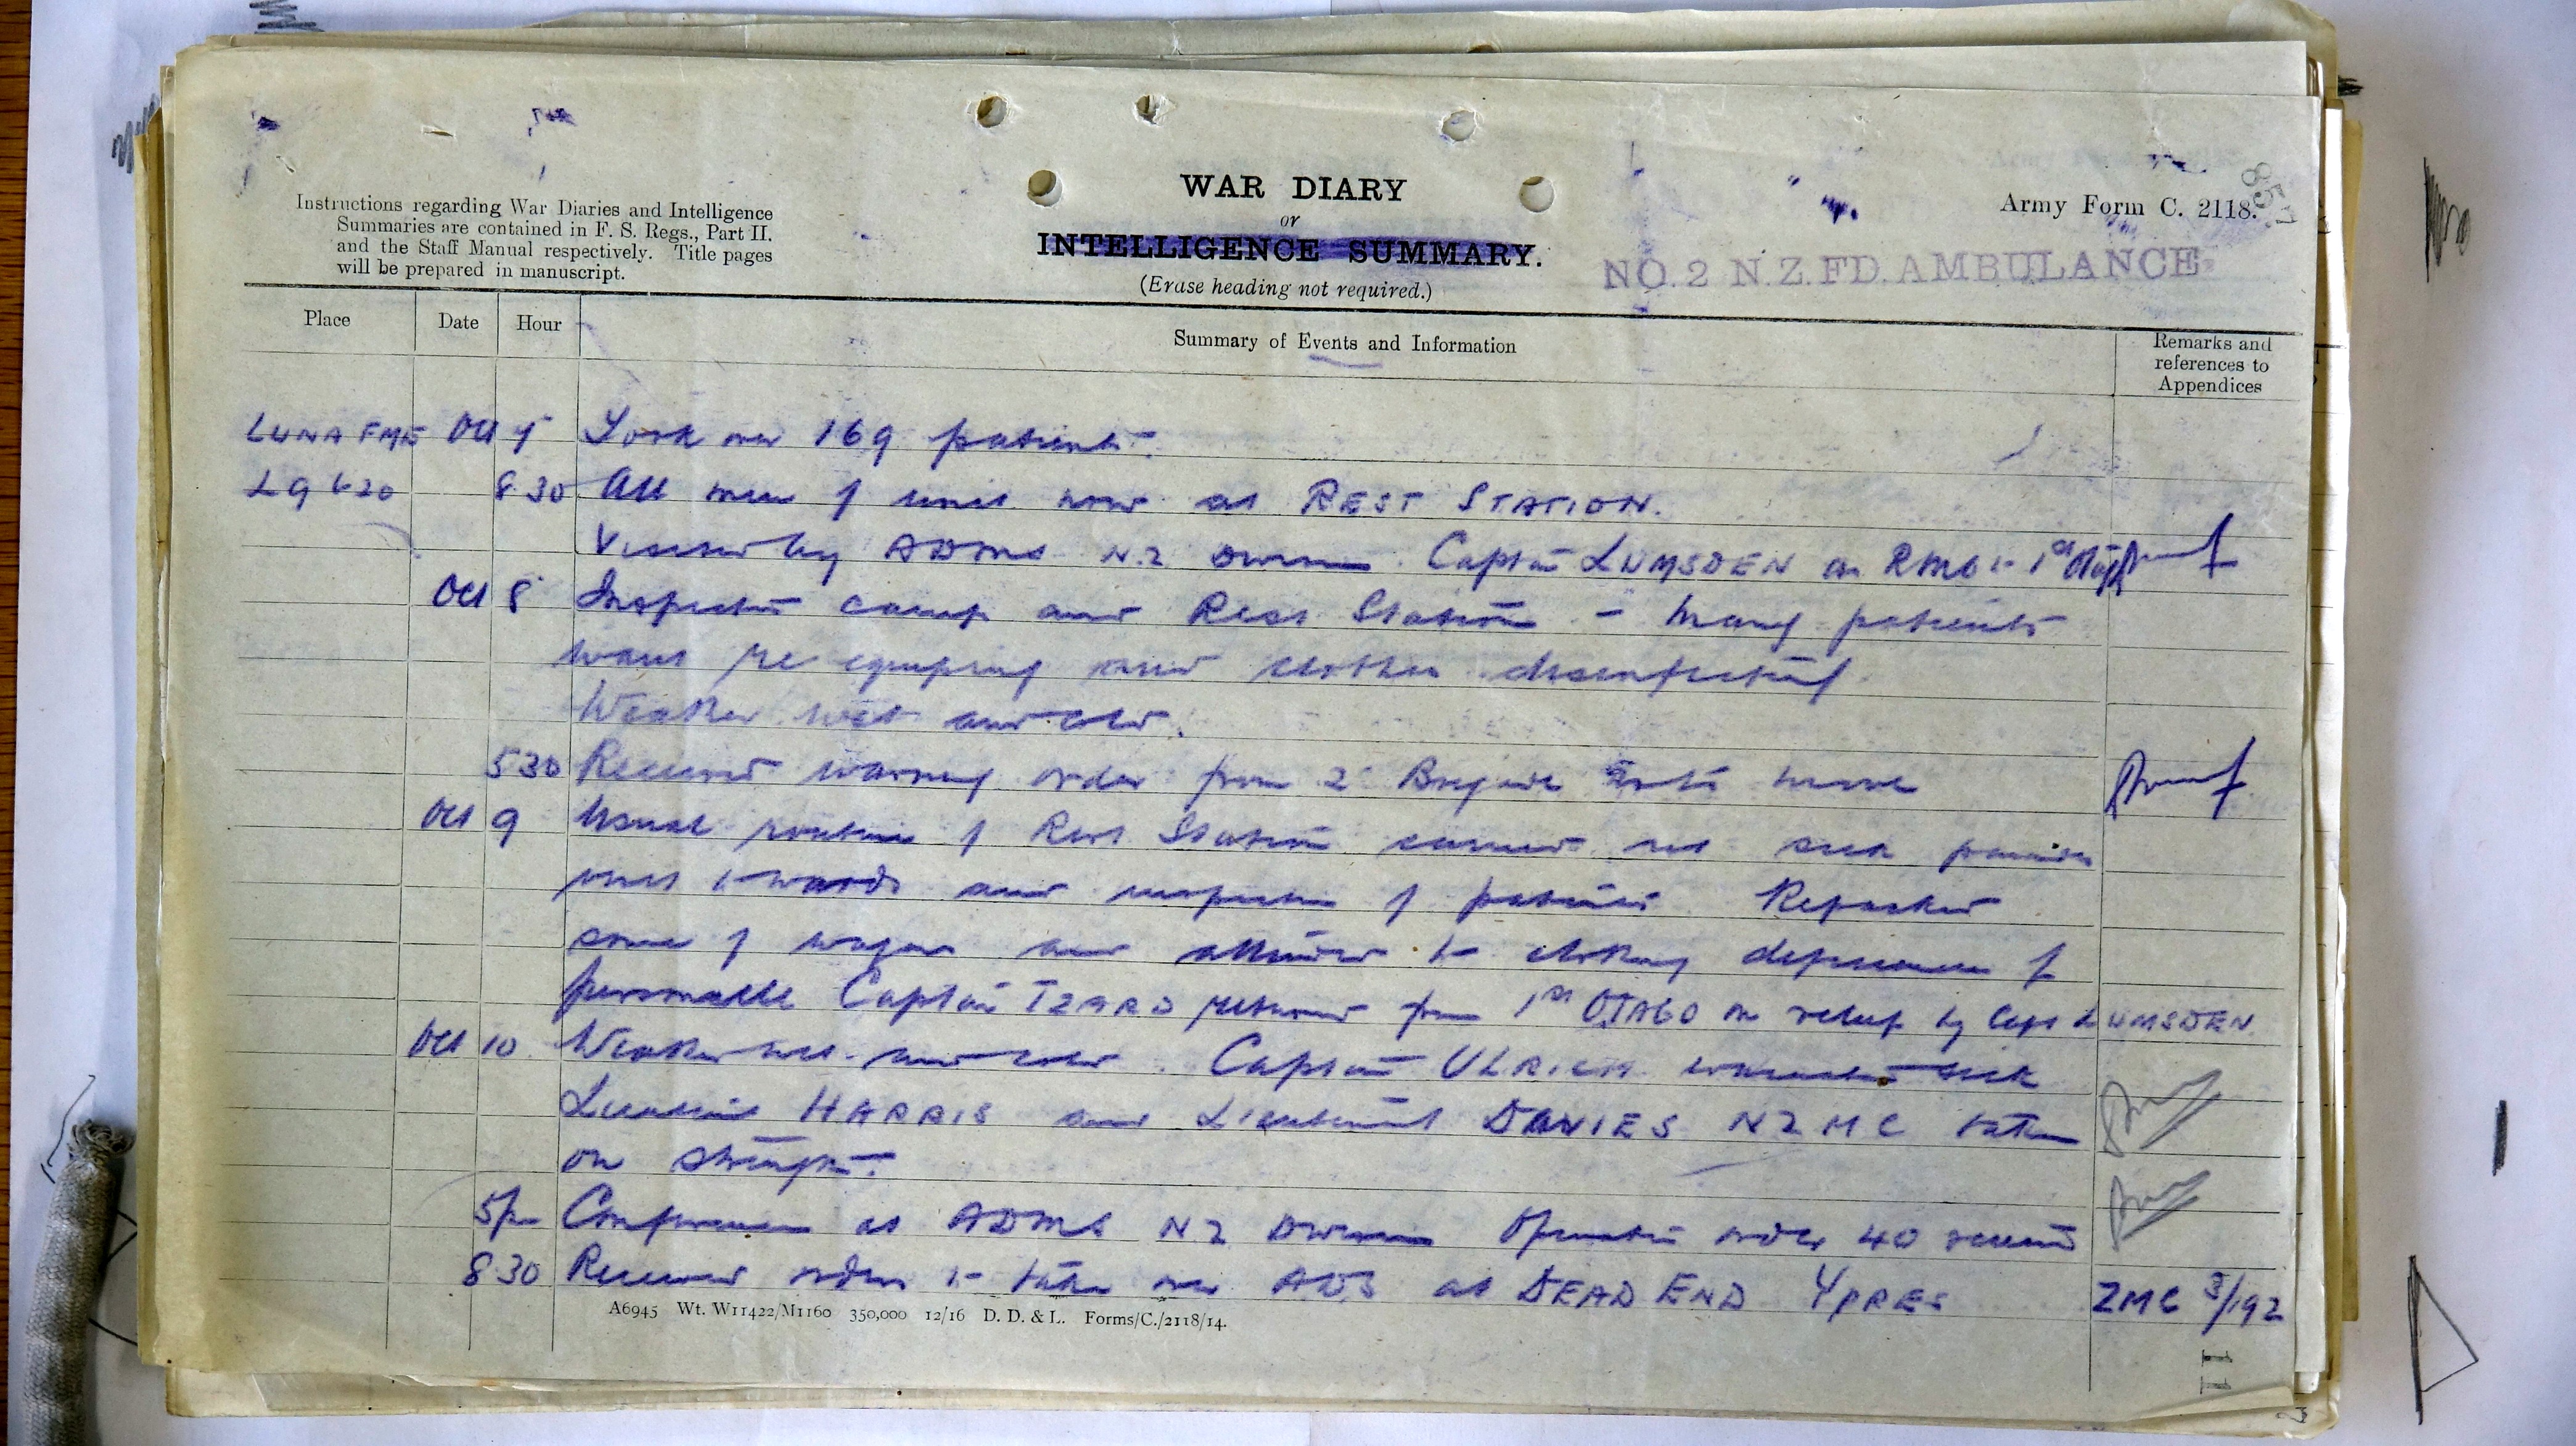 WAR DIARY
or
INTELLIGENCE SUMMARY.
(Erase heading not required.)
Instructions regarding War Diaries and Intelligence
Summaries are contained in F. S. Regs., Part II.
and the Staff Manual respectively. Title pages
will be prepared in manuscript.
Army Form C. 2118.
857
NO. 2 N.Z. FD. AMBULANCE
Place Date Hour Summary of Events and Information Remarks and references to Appendices
LUNA FME Oct 7 Took over 169 patients.
L 9 b 20 8 30 All men of unit now at REST STATION.
Visited by ADMS N.Z Division. Captain LUMSDEN as RMO to 1st Otago
Oct 8 Inspected camp and Rest Station – Many patients
want re equipping and clothes disinfecting
Weather wet and cold.
5 30 Received warning order from 2 Brigade to move
Oct 9 Usual routine of Rest Station carried out sick parades
visit to wards and inspection of patients Repacked
some of wagons and attended to clothing deficiencies of
personnel Captain IZARD returned from 1st OTAGO on relief by Capt LUMSDEN.
Oct 10 Weather wet and cold. Captain ULRICH evacuated sick
Lieutenant HARRIS and Lieutenant DAVIES NZMC taken
on strength.
5p Conference at ADMS NZ Division Operation order 40 received
8 30 Received orders to take over ADS at DEAD END YPRES ZMC 3/192
A6945 Wt. W11422/M1160 350,000 12/16 D. D. & L. Forms/C./2118/14.
11